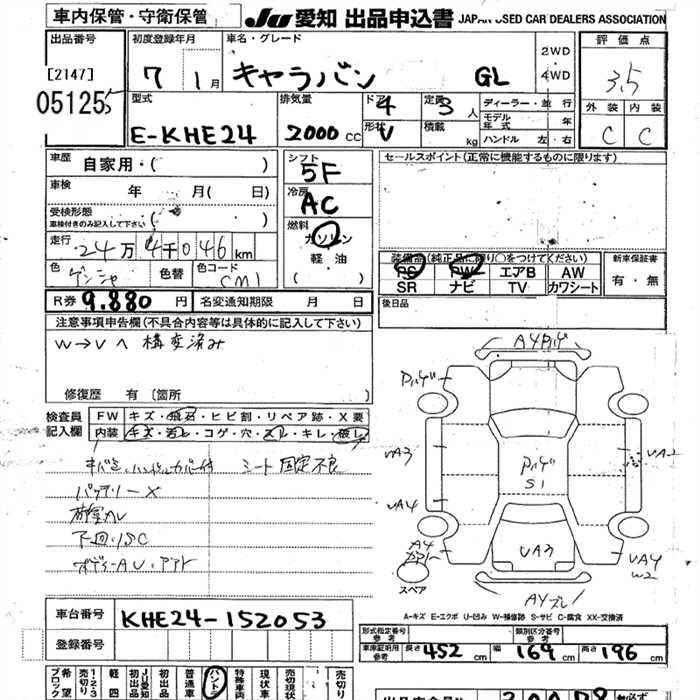 車内保管・守衛保管 JU 愛知 出品申込書 JAPAN USED CAR DEALERS ASSOCIATION
出品番号 初度登録年月 車名・グレード 評価点
[2147] 7年 1月 キャラバン GL 2WD 4WD 3.5
051255 型式 排気量 ドア 4 定員 3人 ディーラー・並行 外装 内装
E-KHE24 2000cc 形状 V 積載 kg モデル年式 年 C C
ハンドル 左・右
車歴 自家用・( ) シフト 5F セールスポイント(正常に機能するものに限ります)
車検 年 月( 日) 冷房 AC
受検形態 車検付きのみ記入して下さい ( ) 燃料 ガソリン
走行 24万4千046km 軽油 装備品(純正品に限り○をつけてください) 新車保証書
色 ゲンシャ 色替 色コード CM1 ( ) PS PW エアB AW 有・無
SR ナビ TV カワシート
R券 9.880円 名変通知期限 月 日 後日品
注意事項申告欄(不具合内容等は具体的に記入して下さい)
W→Vへ構変済み
修復歴 有 〔箇所 〕
検査員記入欄 FW キズ・飛石・ヒビ割・リペア跡・X要
内装 キズ・汚レ・コゲ・穴・スレ・キレ・破レ
シート固定不良
バッテリーX
下回・サC
A4
UA3 UA2
S1
UA4 A4 UA3 UA4 W2
スペア
A-キズ E-エクボ U-凹み W-補修跡 S-サビ C-腐食 XX-交換済
車台番号 KHE24-152053
登録番号
型式指定番号 参考 類別区分番号 参考
車庫証明用 参考 長さ 452cm 幅 169cm 高さ 196cm
希望ブロック 売切り1・2・3 軽四 初出品 JU愛知初出品 普通車 バントラ 特殊車両 現状車 売切現状 売切り